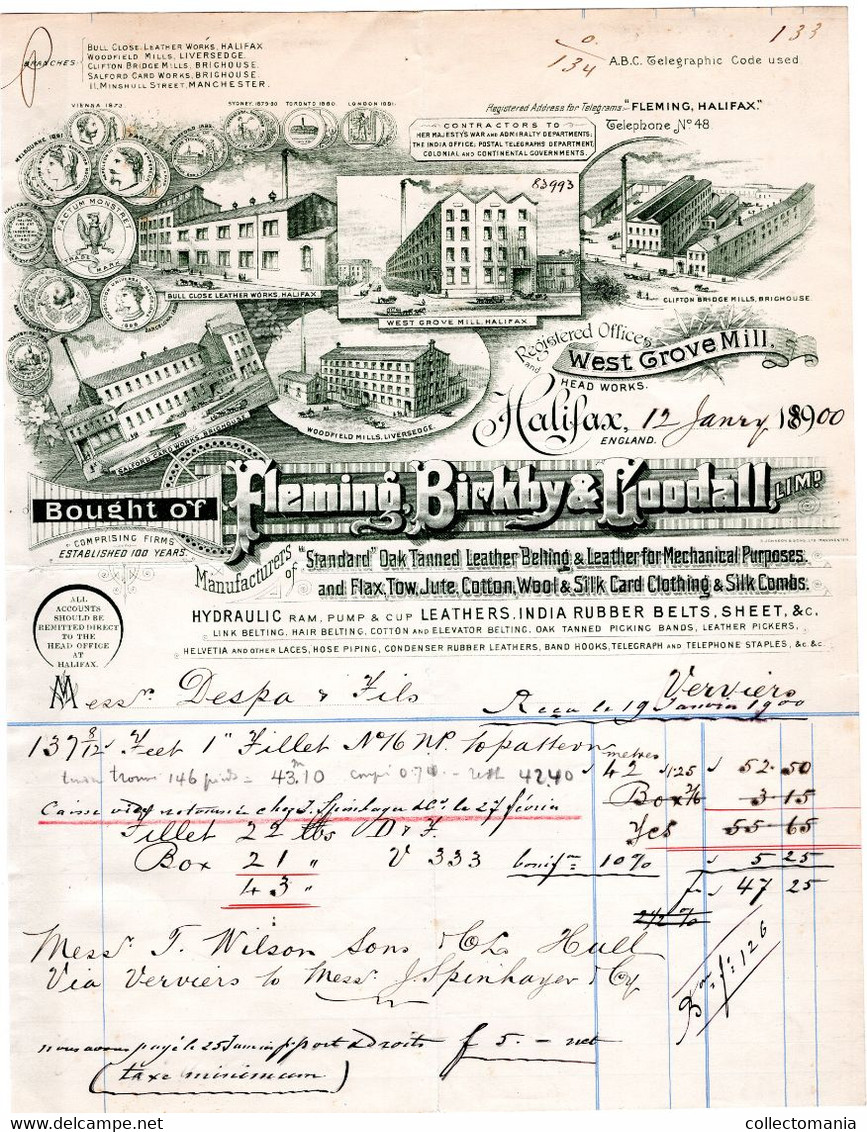 133
0/134
BRANCHES:
BULL CLOSE LEATHER WORKS, HALIFAX
WOODFIELD MILLS, LIVERSEDGE.
CLIFTON BRIDGE MILLS, BRIGHOUSE.
SALFORD CARD WORKS, BRIGHOUSE.
11, MINSHULL STREET, MANCHESTER.
A.B.C. Telegraphic Code used.
Registered Address for Telegrams "FLEMING, HALIFAX."
Telephone No 48
CONTRACTORS TO
HER MAJESTY'S WAR AND ADMIRALTY DEPARTMENTS,
THE INDIA OFFICE; POSTAL TELEGRAPHS DEPARTMENT,
COLONIAL AND CONTINENTAL GOVERNMENTS.
VIENNA 1873.
SYDNEY. 1879-80
TORONTO 1880.
LONDON 1881.
MELBOURNE 1881
FACTUM MONSTRET
TRADE MARK
83993
BULL CLOSE LEATHER WORKS, HALIFAX
WEST GROVE MILL, HALIFAX
CLIFTON BRIDGE MILLS, BRIGHOUSE
SALFORD CARD WORKS, BRIGHOUSE
WOODFIELD MILLS, LIVERSEDGE.
Registered Offices
and
HEAD WORKS.
West Grove Mill,
Halifax, 12 Janry 18900
ENGLAND.
Bought of Fleming, Birkby & Goodall, LIMD
COMPRISING FIRMS
ESTABLISHED 100 YEARS.
Manufacturers of "Standard" Oak Tanned Leather Belting & Leather for Mechanical Purposes.
and Flax, Tow, Jute, Cotton, Wool & Silk Card Clothing & Silk Combs.
HYDRAULIC RAM, PUMP & CUP LEATHERS, INDIA RUBBER BELTS, SHEET, &C.
LINK BELTING, HAIR BELTING, COTTON AND ELEVATOR BELTING, OAK TANNED PICKING BANDS, LEATHER PICKERS,
HELVETIA AND OTHER LACES, HOSE PIPING, CONDENSER RUBBER LEATHERS, BAND HOOKS, TELEGRAPH AND TELEPHONE STAPLES, &c. &c.
ALL
ACCOUNTS
SHOULD BE
REMITTED DIRECT
TO THE
HEAD OFFICE
AT
HALIFAX.
Messrs. Despa & Fils Verviers
Reçu le 19 Janvier 1900
137 8/12 Feet 1" Fillet No 16 N.P. to pattern
metres
42 1.25 52.50
146 pieds = 43.10 0.70 42.40
Box 3/6 3.15
Caisse vide retournée chez J. Spinhayer & Co. le 27 février
Fillet 22 lbs D & F. 55.65
Box 21 " V 333 bonifon 10% 5 25
43 " f 47 25
2 1/2 %
Bon f. 126
Messrs. T. Wilson Sons & Co. Ld Hull
Via Verviers to Messrs. J. Spinhayer & Cy
nous avons payé le 25 Janvier pr port & droits f 5. - net
(taxe minimum)
collectomania